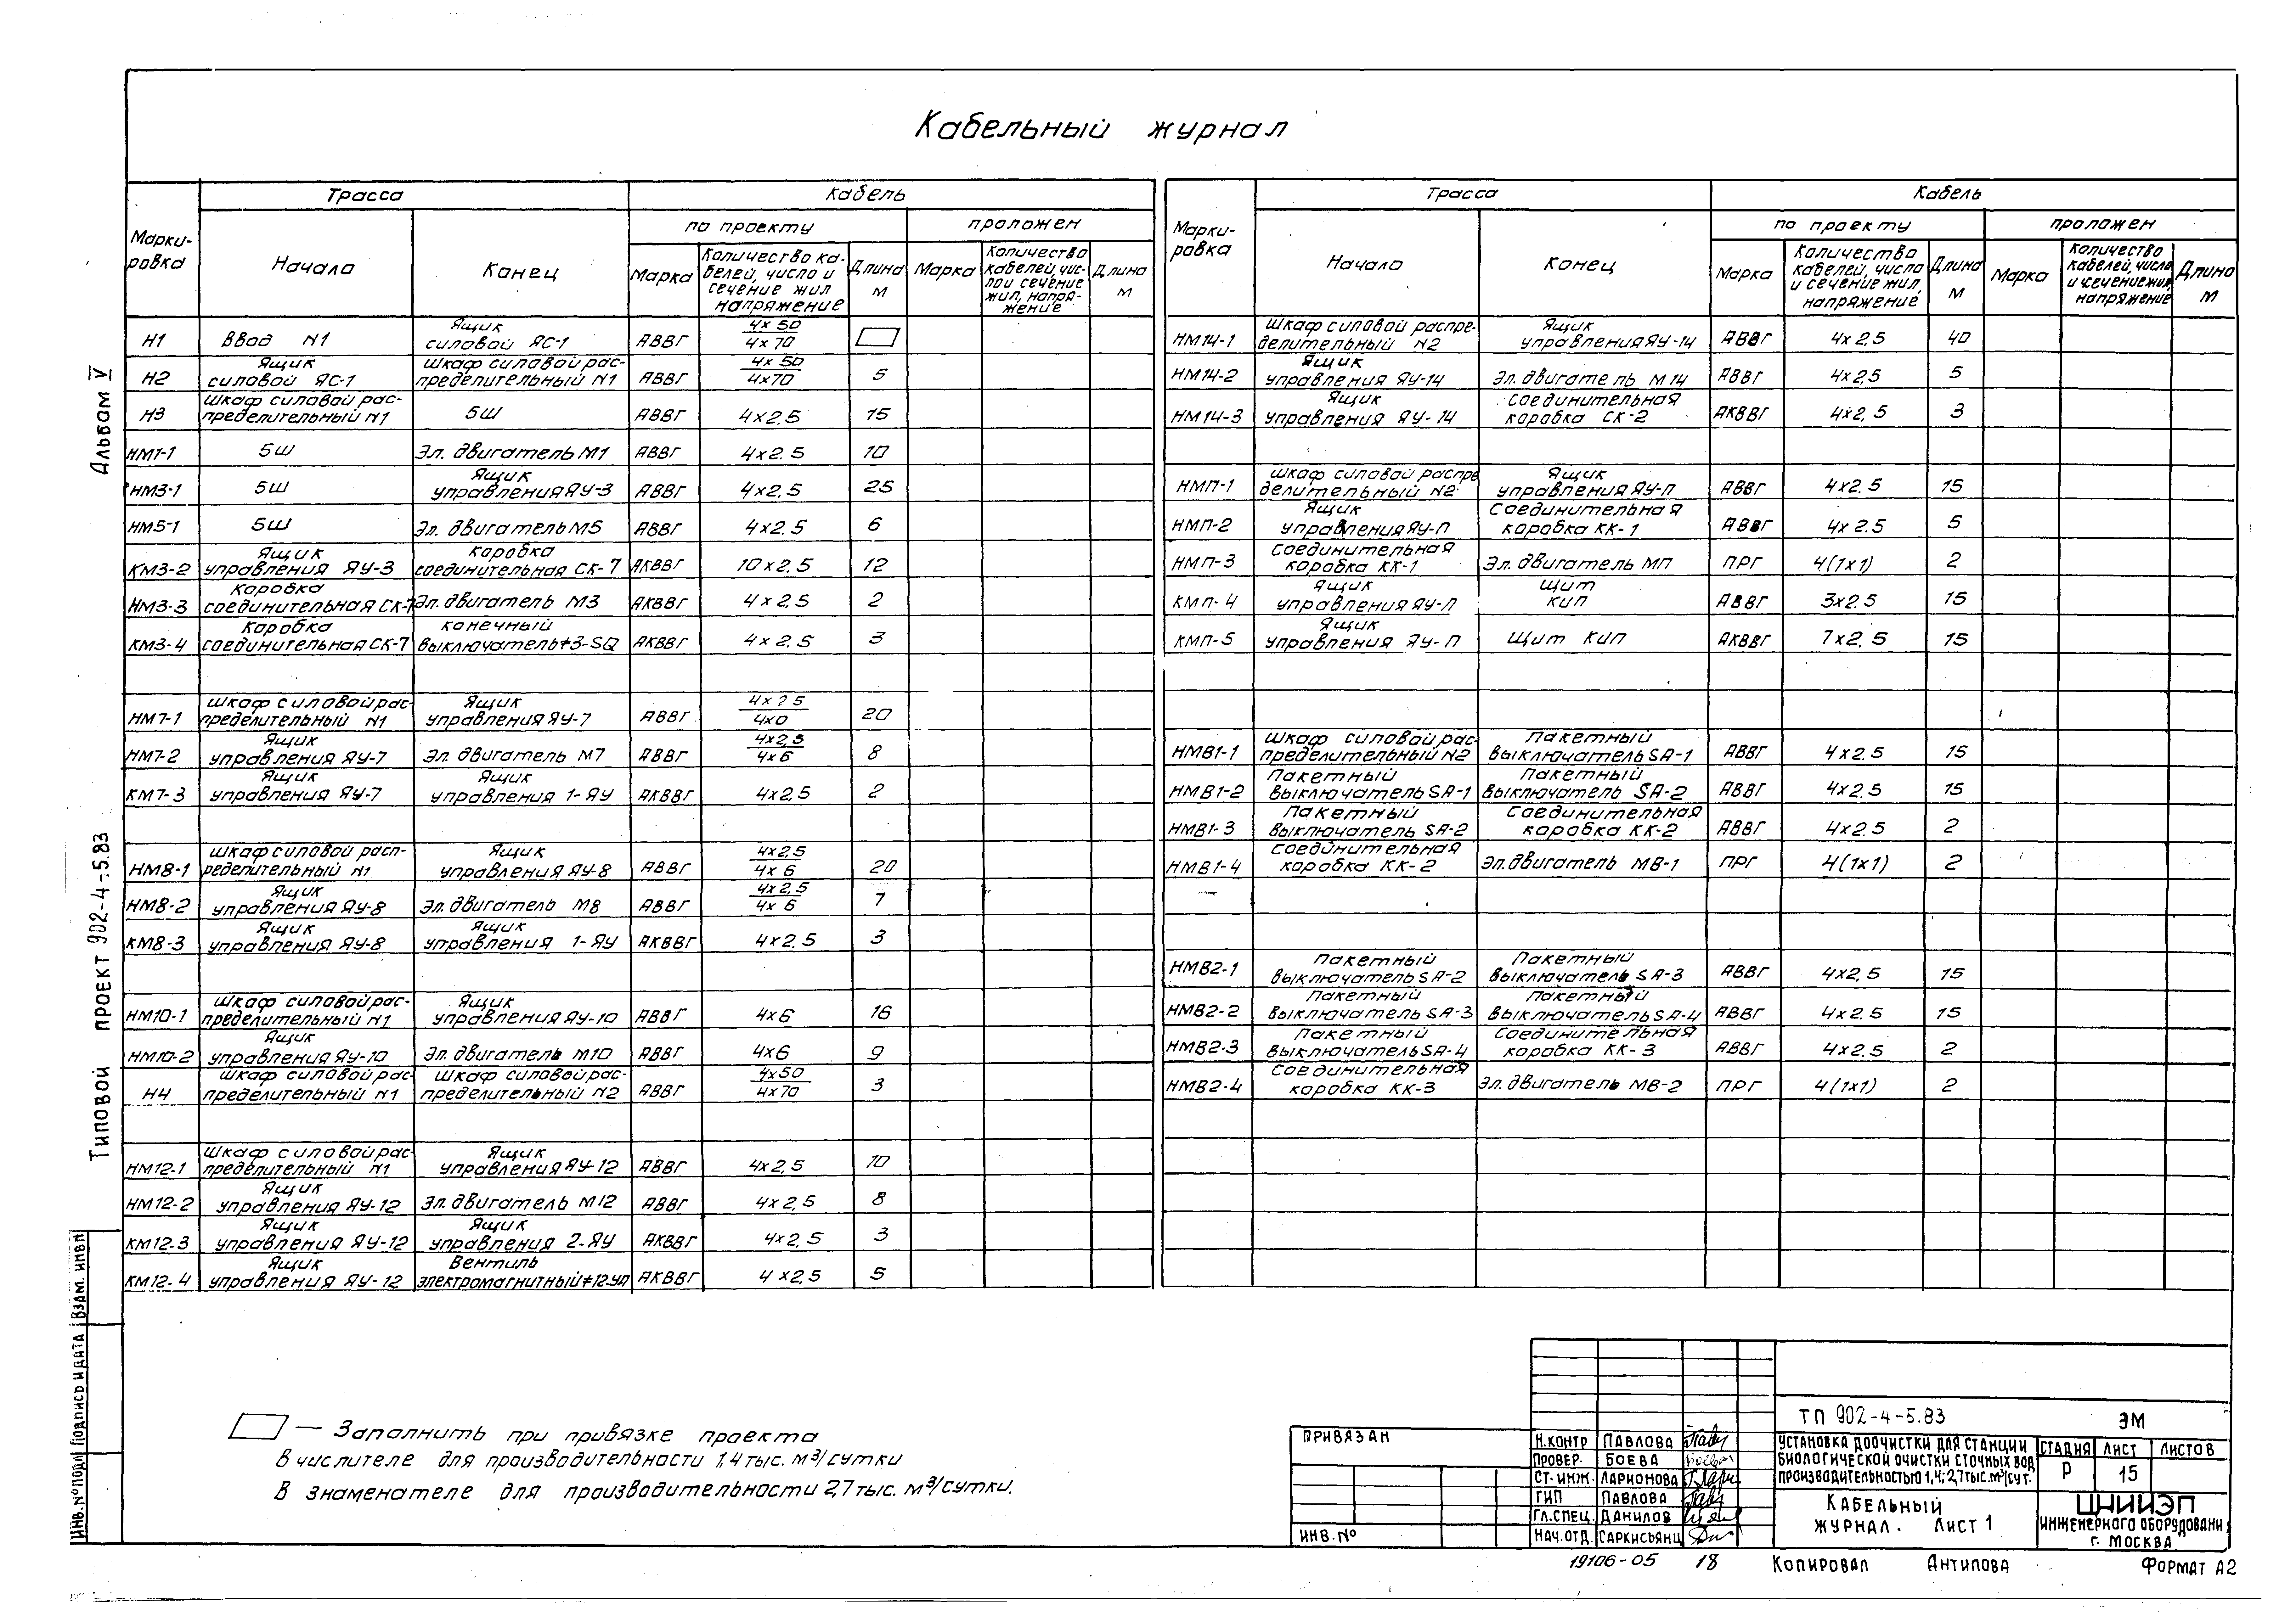 Кабельный журнал
Марки-ровка | Трасса | Кабель
Начало | Конец | по проекту | проложен
Марка | Количество ка-белей, число и сечение жил напряжение | Длина м | Марка | Количество кабелей, чис-ло и сечение жил, напря-жение | Длина м
Н1 | Ввод N1 | Ящик силовой ЯС-1 | АВВГ | 4х50 / 4х70
Н2 | Ящик силовой ЯС-1 | Шкаф силовой рас-пределительный N1 | АВВГ | 4х50 / 4х70 | 5
Н3 | Шкаф силовой рас-пределительный N1 | 5Ш | АВВГ | 4х2,5 | 15
НМ1-1 | 5Ш | Эл. двигатель М1 | АВВГ | 4х2.5 | 10
НМ3-1 | 5Ш | Ящик управления ЯУ-3 | АВВГ | 4х2.5 | 25
НМ5-1 | 5Ш | Эл. двигатель М5 | АВВГ | 4х2.5 | 6
КМ3-2 | Ящик управления ЯУ-3 | Коробка соединительная СК-7 | АКВВГ | 10х2,5 | 12
НМ3-3 | Коробка соединительная СК-7 | Эл. двигатель М3 | АКВВГ | 4х2,5 | 2
КМ3-4 | Коробка соединительная СК-7 | конечный выключатель+3-SQ | АКВВГ | 4х2,5 | 3
НМ7-1 | Шкаф силовой рас-пределительный N1 | Ящик управления ЯУ-7 | АВВГ | 20
НМ7-2 | Ящик управления ЯУ-7 | Эл. двигатель М7 | АВВГ | 4х2,5 / 4х6 | 8
КМ7-3 | Ящик управления ЯУ-7 | Ящик управления 1-ЯУ | АКВВГ | 4х2,5 | 2
НМ8-1 | Шкаф силовой расп-ределительный N1 | Ящик управления ЯУ-8 | АВВГ | 4х2,5 / 4х6 | 20
НМ8-2 | Ящик управления ЯУ-8 | Эл. двигатель М8 | АВВГ | 4х2,5 / 4х6 | 7
КМ8-3 | Ящик управления ЯУ-8 | Ящик управления 1-ЯУ | АКВВГ | 4х2,5 | 3
НМ10-1 | Шкаф силовой рас-пределительный N1 | Ящик управления ЯУ-10 | АВВГ | 4х6 | 16
НМ10-2 | Ящик управления ЯУ-10 | Эл. двигатель М10 | АВВГ | 4х6 | 9
Н4 | Шкаф силовой рас-пределительный N1 | Шкаф силовой рас-пределительный N2 | АВВГ | 4х50 / 4х70 | 3
НМ12-1 | Шкаф силовой рас-пределительный N1 | Ящик управления ЯУ-12 | АВВГ | 4х2,5 | 10
НМ12-2 | Ящик управления ЯУ-12 | Эл. двигатель М12 | АВВГ | 4х2,5 | 8
КМ12-3 | Ящик управления ЯУ-12 | Ящик управления 2-ЯУ | АКВВГ | 4х2,5 | 3
КМ12-4 | Ящик управления ЯУ-12 | Вентиль электромагнитный | АКВВГ | 4х2,5 | 5
Марки-ровка | Трасса | Кабель
Начало | Конец | по проекту | проложен
Марка | Количество кабелей, число и сечение жил, напряжение | Длина м | Марка | Количество кабелей, число и сечение жил, напряжение | Длина м
НМ14-1 | Шкаф силовой распре-делительный N2 | Ящик управления ЯУ-14 | АВВГ | 4х2,5 | 40
НМ14-2 | Ящик управления ЯУ-14 | Эл. двигатель М14 | АВВГ | 4х2,5 | 5
НМ14-3 | Ящик управления ЯУ-14 | Соединительная коробка СК-2 | АКВВГ | 4х2,5 | 3
НМП-1 | Шкаф силовой распре делительный N2 | Ящик управления ЯУ-П | АВВГ | 4х2,5 | 15
НМП-2 | Ящик управления ЯУ-П | Соединительная коробка КК-1 | АВВГ | 4х2.5 | 5
НМП-3 | Соединительная коробка КК-1 | Эл. двигатель МП | ПРГ | 4(1х1) | 2
КМП-4 | Ящик управления ЯУ-П | Щит КИП | АВВГ | 3х2.5 | 15
КМП-5 | Ящик управления ЯУ-П | Щит КИП | АКВВГ | 7х2,5 | 15
НМВ1-1 | Шкаф силовой рас-пределительный N2 | Пакетный выключатель SA-1 | АВВГ | 4х2.5 | 15
НМВ1-2 | Пакетный выключатель SA-1 | Пакетный выключатель SA-2 | АВВГ | 4х2.5 | 15
НМВ1-3 | Пакетный выключатель SA-2 | Соединительная коробка КК-2 | АВВГ | 4х2.5 | 2
НМВ1-4 | Соединительная коробка КК-2 | Эл. двигатель МВ-1 | ПРГ | 4(1х1) | 2
НМВ2-1 | Пакетный выключатель SA-2 | Пакетный выключатель SA-3 | АВВГ | 4х2,5 | 15
НМВ2-2 | Пакетный выключатель SA-3 | Пакетный выключатель SA-4 | АВВГ | 4х2.5 | 15
НМВ2.3 | Пакетный выключатель SA-4 | Соединительная коробка КК-3 | АВВГ | 4х2.5 | 2
НМВ2-4 | Соединительная коробка КК-3 | Эл. двигатель МВ-2 | ПРГ | 4(1х1) | 2
— Заполнить при привязке проекта
В числителе для производительности 1,4 тыс. м³/сутки
В знаменателе для производительности 2,7 тыс. м³/сутки.
Альбом V
Типовой проект 902-4-5.83
Инв.№подл Подпись и дата Взам. инв№
Привязан
Инв. №
Н.контр Павлова
Провер. Боева
Ст. инж. Ларионова
ГИП Павлова
Гл.спец. Данилов
Нач.отд. Саркисьянц
ТП 902-4-5.83 ЭМ
Установка доочистки для станции биологической очистки сточных вод производительностью 1,4; 2,7 тыс. м³/сут.
Стадия Лист Листов
Р 15
Кабельный журнал. Лист 1
ЦНИИЭП
инженерного оборудовани
г. Москва
19106-05 18
Копировал Антипова
Формат А2